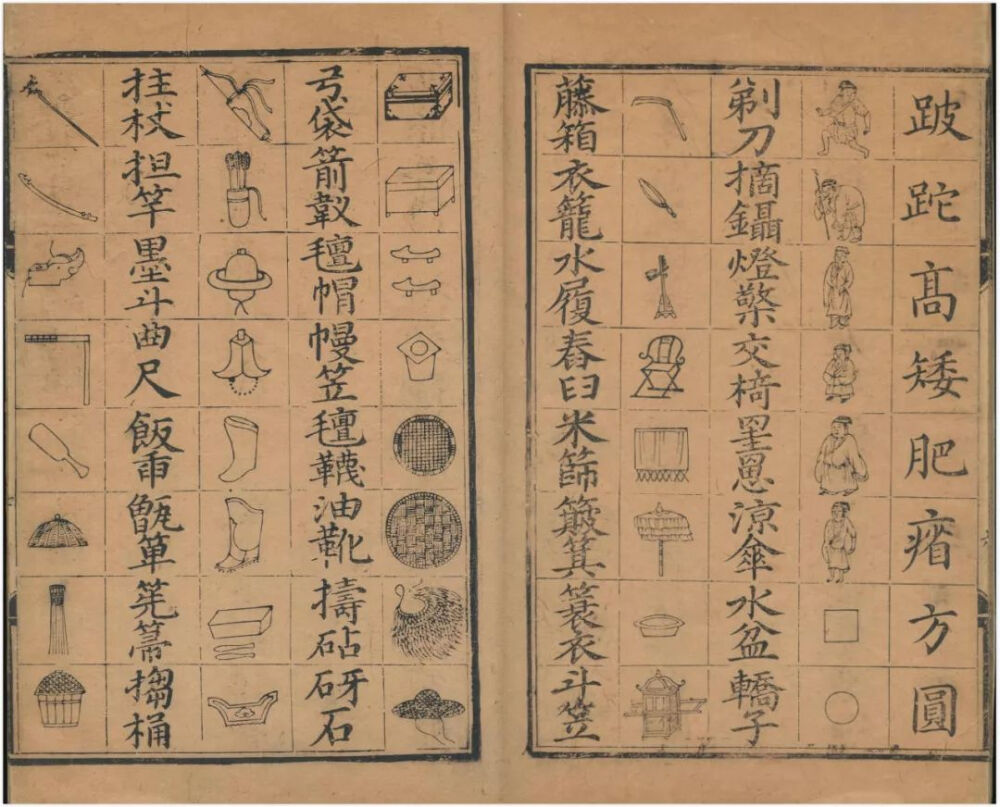 跛跎髙矮肥瘠方圓
剃刀摘鑷燈檠交椅罣罳涼傘水盆轎子
藤箱衣籠水履舂臼米篩簸箕簑衣斗笠
弓袋箭靫氊帽幔笠氊韈油靴擣砧砑石
拄杖担竿墨斗曲尺飯臿甑箄筅箒搊桶